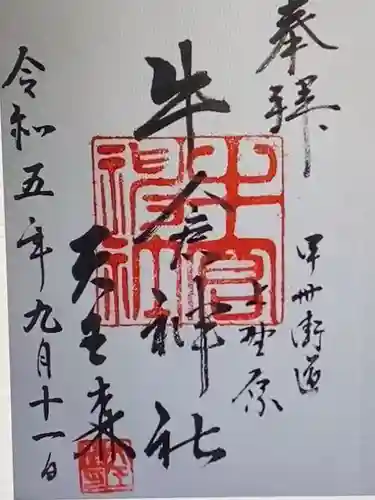 奉拝
甲州街道
上野原
牛倉神社
天王森
令和五年九月十一日